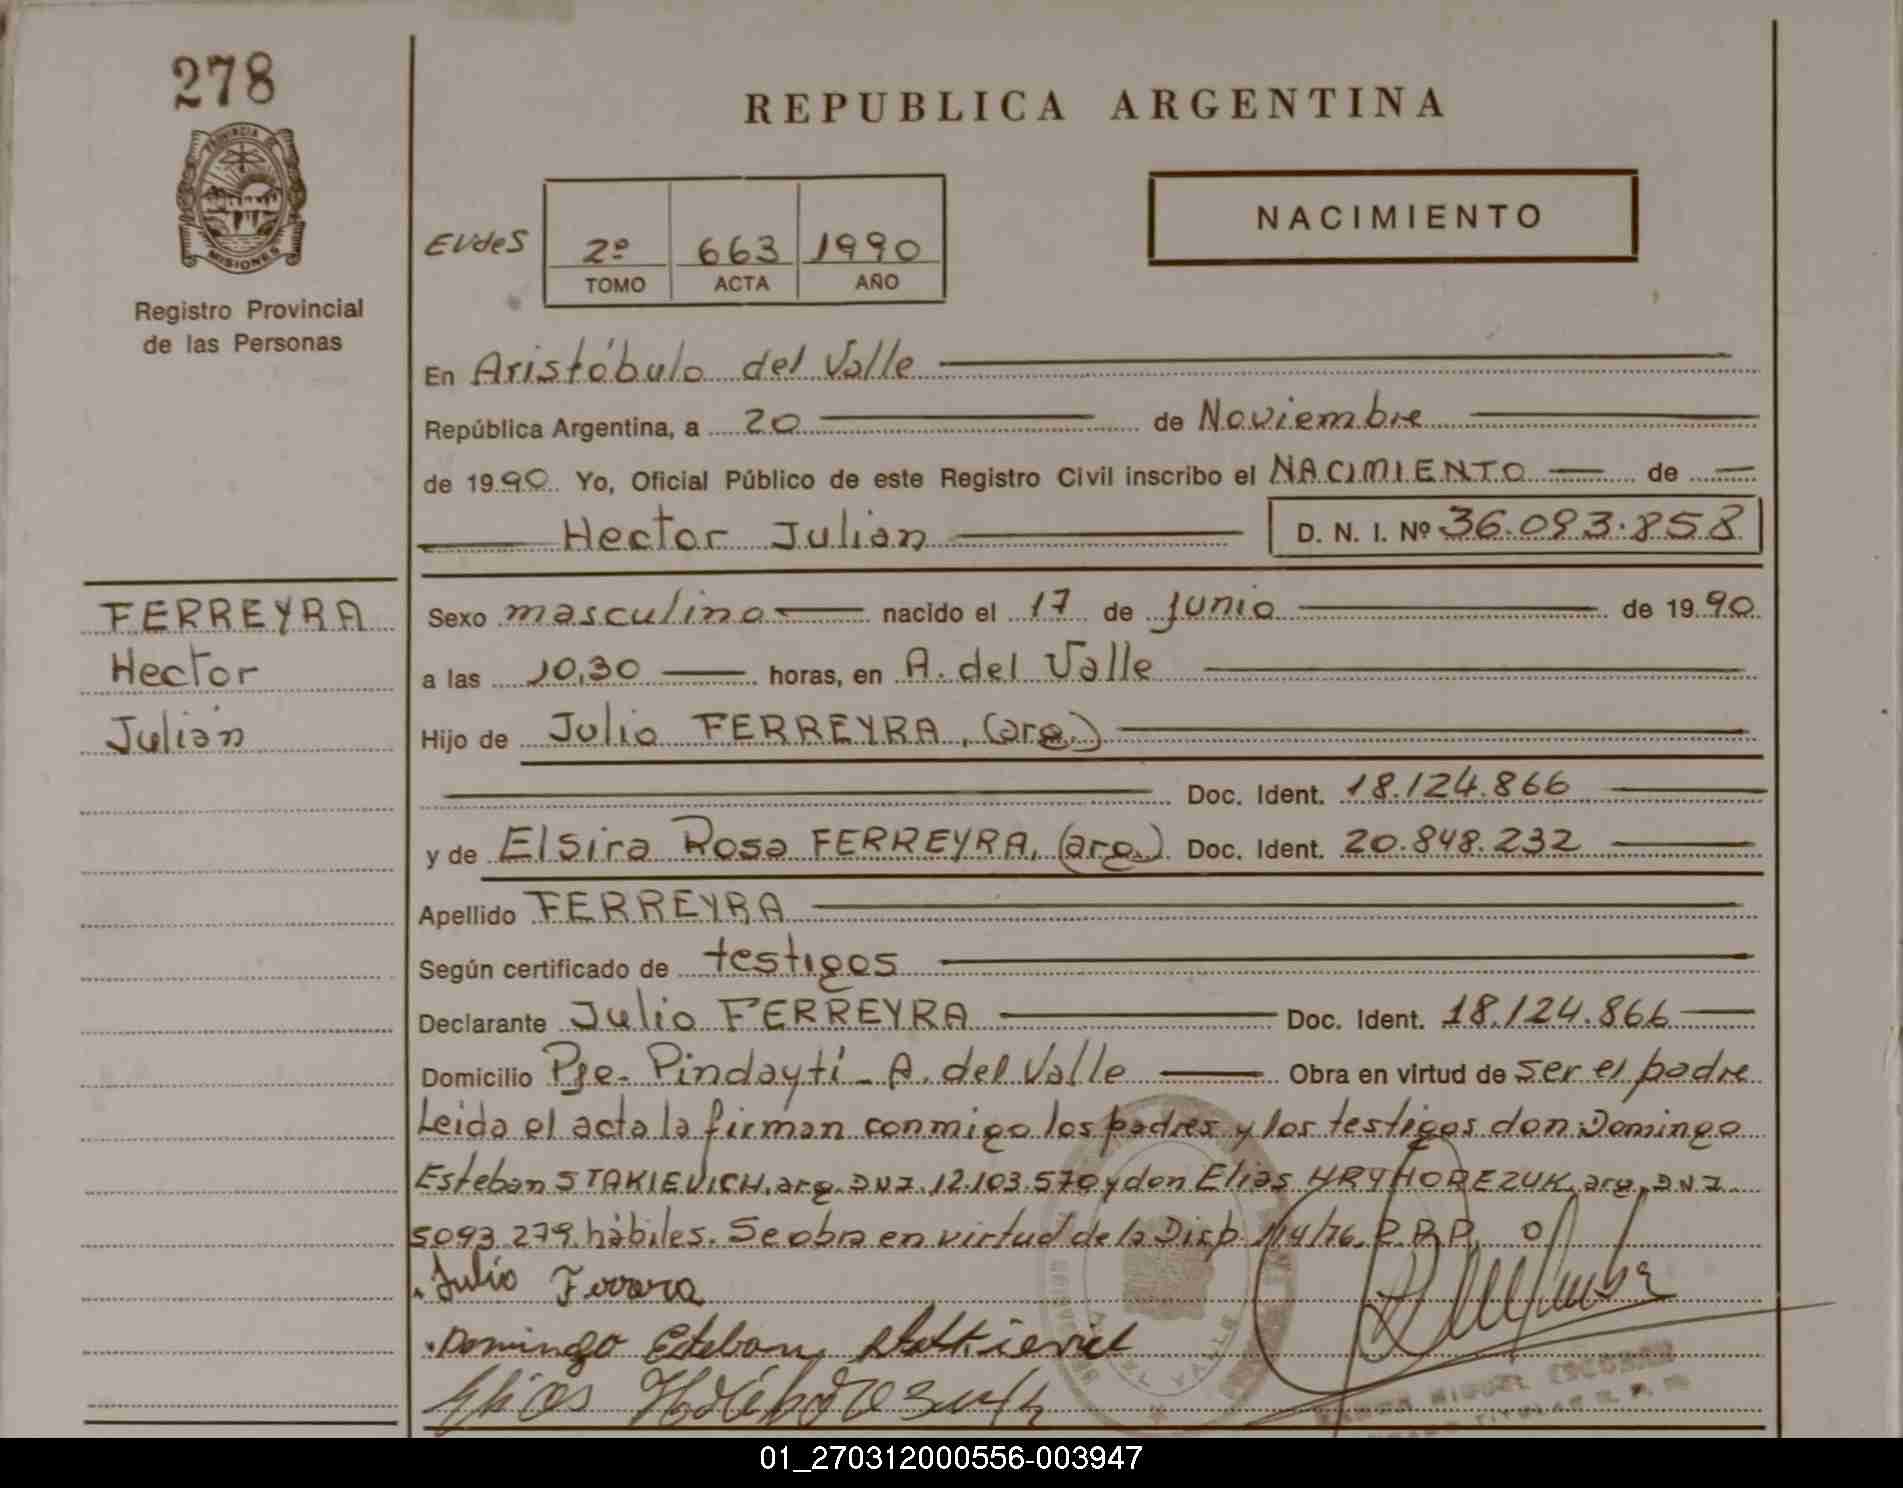 278
REPUBLICA ARGENTINA
PROVINCIA DE
MISIONES
NACIMIENTO
EVdeS 2º 663 1990
TOMO ACTA AÑO
Registro Provincial
de las Personas
En Aristóbulo del Valle
República Argentina, a 20 de Noviembre
de 1990 Yo, Oficial Público de este Registro Civil inscribo el NACIMIENTO de
Hector Julian D. N. I. Nº 36.093.858
FERREYRA
Hector
Julian
Sexo masculino nacido el 17 de junio de 1990
a las 10,30 horas, en A. del Valle
Hijo de Julio FERREYRA, (arg.)
Doc. Ident. 18.124.866
y de Elsira Rosa FERREYRA, (arg.) Doc. Ident. 20.848.232
Apellido FERREYRA
Según certificado de testigos
Declarante Julio FERREYRA Doc. Ident. 18.124.866
Domicilio Pje. Pindaytí - A. del Valle Obra en virtud de ser el padre
Leida el acta la firman conmigo los padres y los testigos don Domingo
Esteban STAKIEVICH, arg. DNI. 12.103.570 y don Elias HRYHOREZUK, arg. DNI
5093.279. hábiles. Se obra en virtud de la Disp. 114/76
Julio
Domingo Esteban
Elias
MIGUEL ESCOBAR
01_270312000556-003947